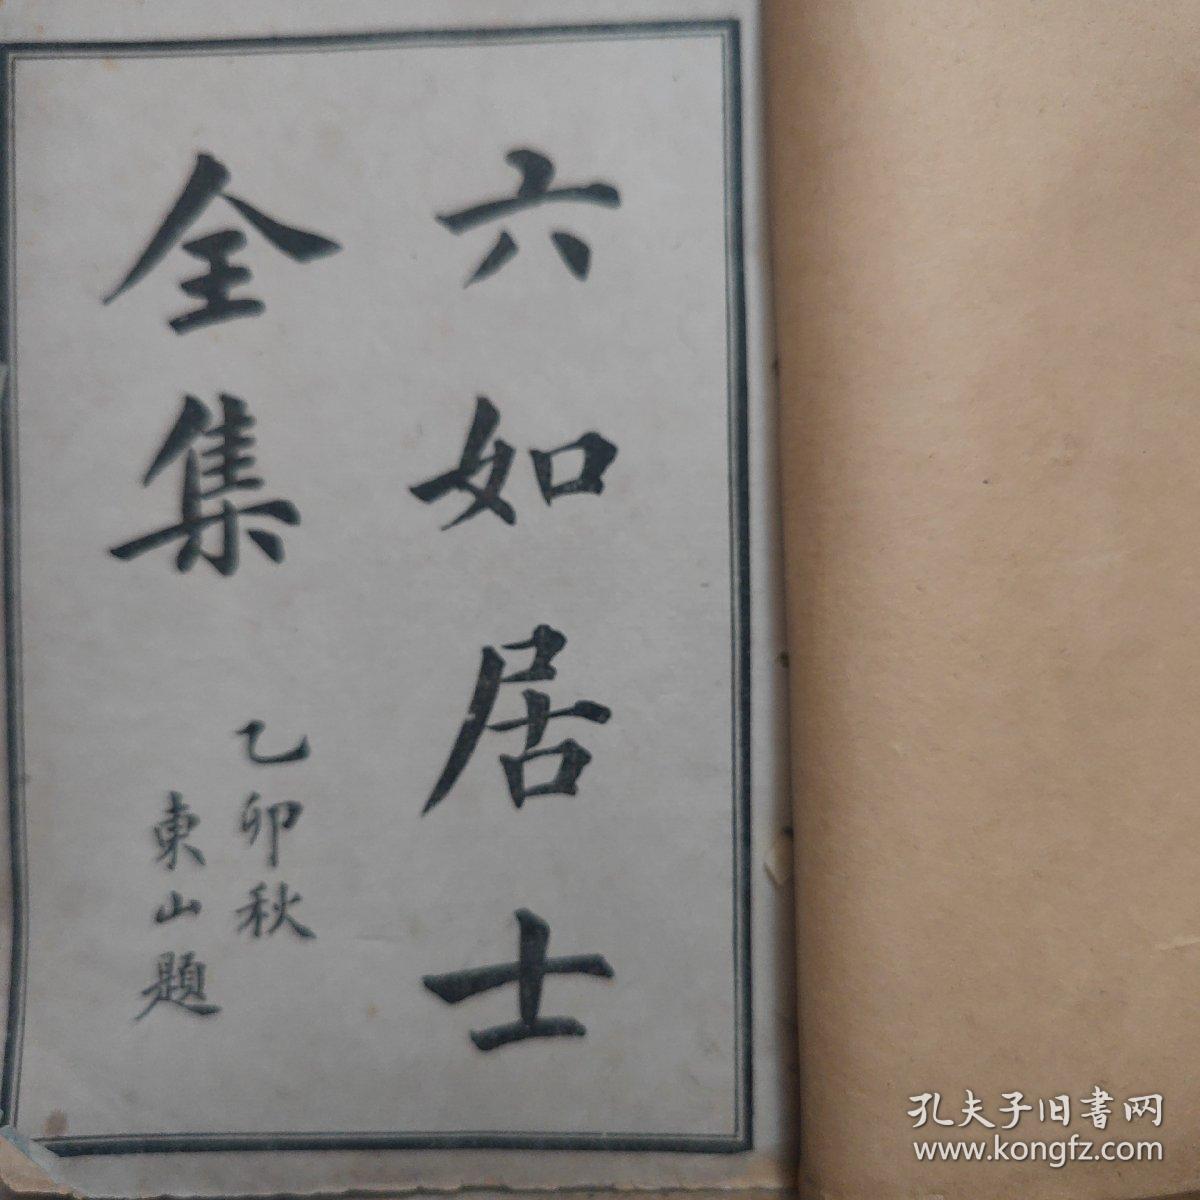 六如居士
全集
乙卯秋
東山題
孔夫子旧書网
www.kongfz.com